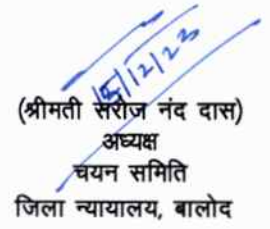 15/12/23
(श्रीमती सरोज नंद दास)
अध्यक्ष
चयन समिति
जिला न्यायालय, बालोद